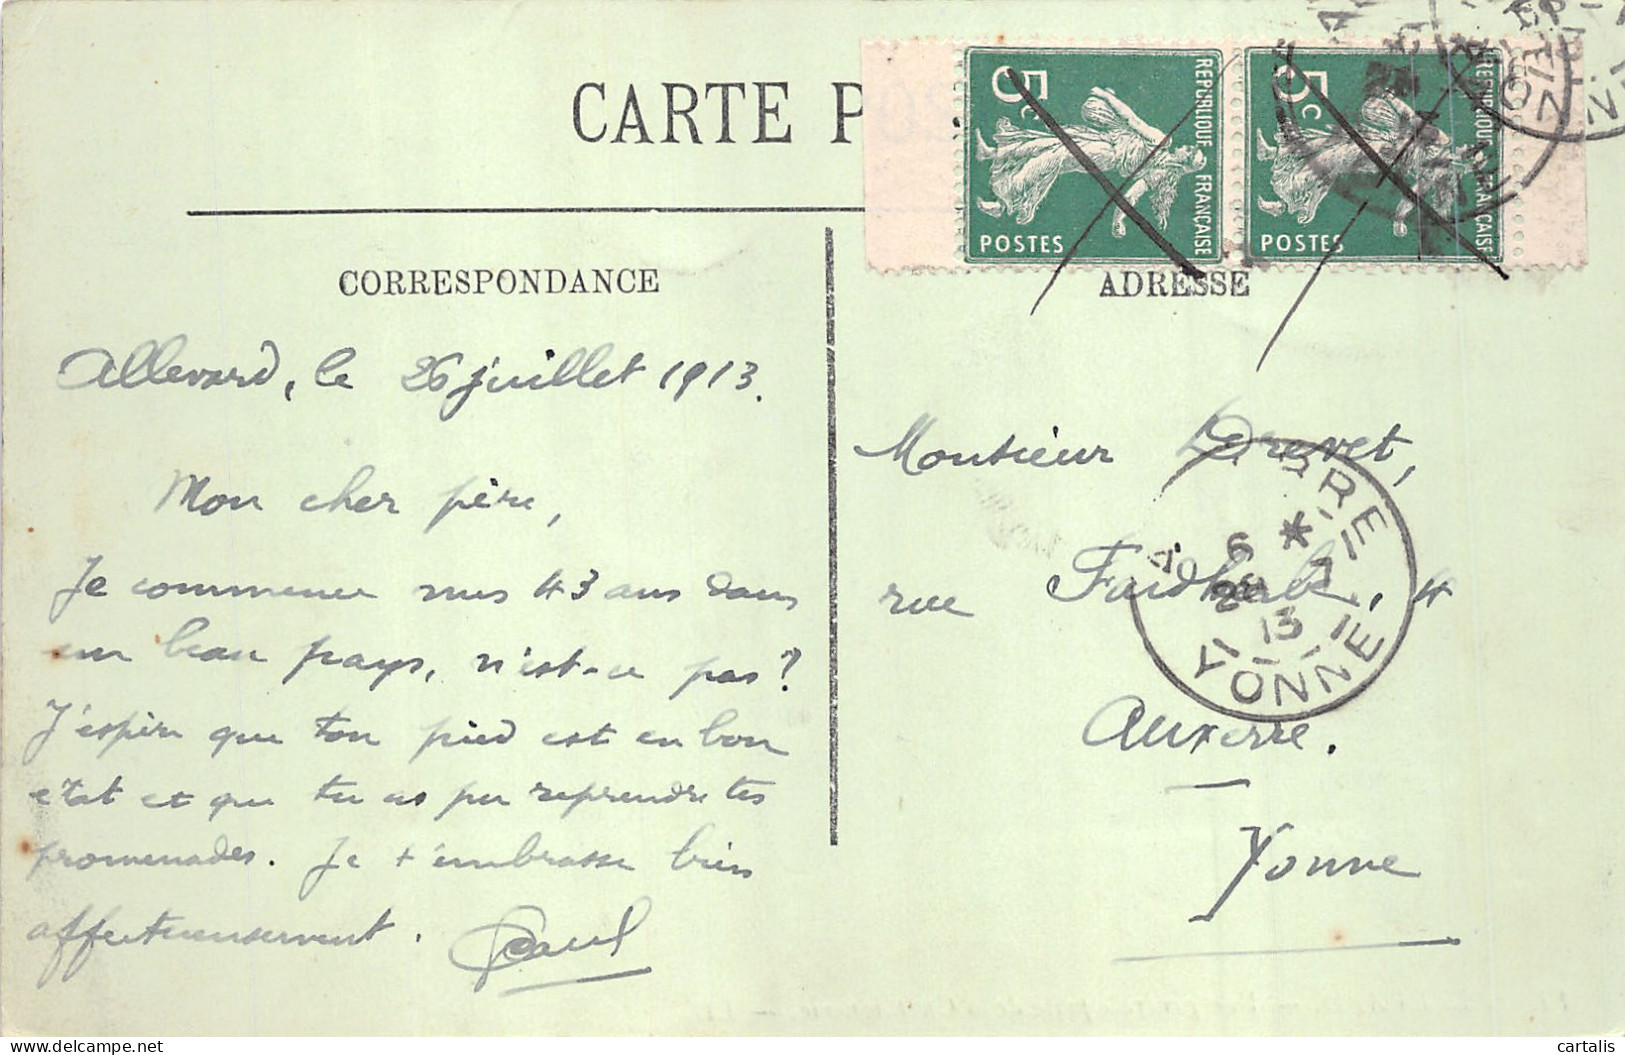 CARTE P
5c
REPUBLIQUE FRANÇAISE
POSTES
5c
REPUBLIQUE FRANÇAISE
POSTES
CORRESPONDANCE
ADRESSE
Allevard, le 26 juillet 1913.
Mon cher père,
Je commence mes 43 ans dans
un beau pays, n'est-ce pas?
J'espère que ton pied est en bon
état et que tu as pu reprendre tes
promenades. Je t'embrasse bien
affectueusement.
Paul
Monsieur Drevet,
rue Faidherbe, 4
Auxerre.
Yonne
6 *
28 7
13
YONNE
cartalis
delcampe.net